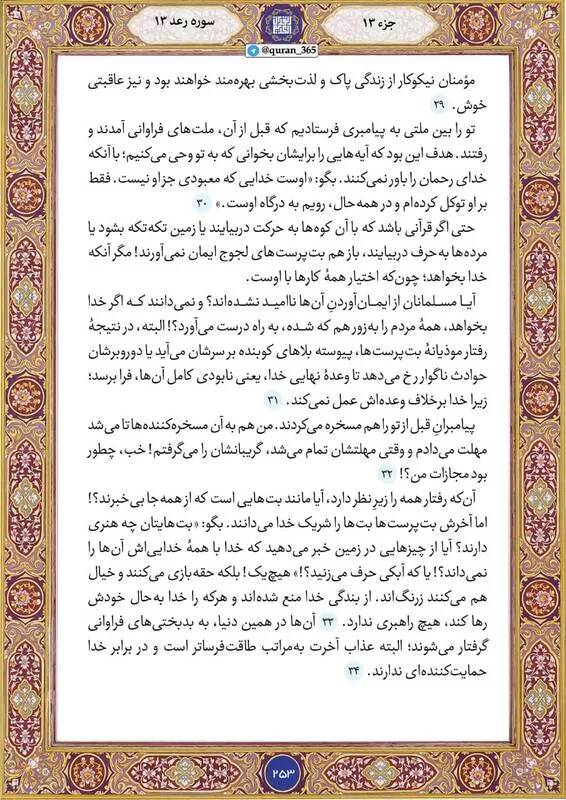 جزء ۱۳
سوره رعد ۱۳
@quran_365
مؤمنان نیکوکار از زندگی پاک و لذت‌بخشی بهره‌مند خواهند بود و نیز عاقبتی
خوش. ۲۹
تو را بین ملتی به پیامبری فرستادیم که قبل از آن، ملت‌های فراوانی آمدند و
رفتند. هدف این بود که آیه‌هایی را برایشان بخوانی که به تو وحی می‌کنیم؛ با آنکه
خدای رحمان را باور نمی‌کنند. بگو: «اوست خدایی که معبودی جز او نیست. فقط
بر او توکل کرده‌ام و در همه‌حال، رویم به درگاه اوست.» ۳۰
حتی اگر قرآنی باشد که با آن کوه‌ها به حرکت دربیایند یا زمین تکه‌تکه بشود یا
مرده‌ها به‌حرف دربیایند، باز هم بت‌پرست‌های لجوج ایمان نمی‌آورند! مگر آنکه
خدا بخواهد؛ چون‌که اختیار همهٔ کارها با اوست.
آیـا مسـلمانان از ایمـان‌آوردنِ آن‌ها ناامیـد نشـده‌اند؟ و نمی‌دانند کـه اگر خدا
بخواهد، همهٔ مردم را به‌زور هم که شـده، به راه درست می‌آورد؟! البته، در نتیجهٔ
رفتار موذیانهٔ بت‌پرست‌ها، پیوسته بلاهای کوبنده بر سرشان می‌آید یا دوروبرشان
حوادث ناگوار رخ می‌دهد تا وعدهٔ نهایی خدا، یعنی نابودی کامل آن‌ها، فرا برسد؛
زیرا خدا برخلاف وعده‌اش عمل نمی‌کند. ۳۱
پیامبرانِ قبل از تو را هم مسخره می‌کردند. من هم به آن مسخره‌کننده‌ها تا می‌شد
مهلت می‌دادم و وقتی مهلتشان تمام می‌شد، گریبانشان را می‌گرفتم! خب، چطور
بود مجازات من؟! ۳۲
آن‌که رفتار همه را زیرِ نظر دارد، آیا مانند بت‌هایی است که از همه‌جا بی‌خبرند؟!
اما آخرش بت‌پرست‌ها بت‌ها را شریک خدا می‌دانند. بگو: «بت‌هایتان چه هنری
دارند؟ آیا از چیزهایی در زمین خبر می‌دهید که خدا با همهٔ خدایی‌اش آن‌ها را
نمی‌داند؟! یا که آبکی حرف می‌زنید؟!» هیچ‌یک! بلکه حقه‌بازی می‌کنند و خیال
هم می‌کنند زرنگ‌اند. از بندگی خدا منع شده‌اند و هرکه را خدا به‌حال خودش
رها کند، هیچ راهبری ندارد. ۳۳ آن‌ها در همین دنیا، به بدبختی‌های فراوانی
گرفتار می‌شوند؛ البته عذاب آخرت به‌مراتب طاقت‌فرساتر است و در برابر خدا
حمایت‌کننده‌ای ندارند. ۳۴
۲۵۳